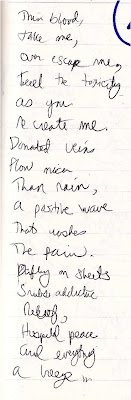 Thin blood,
take me,
escape me,
Feel the toxicity
as you
Re create me.
Donated vein
Flow nicer
Than rain,
a positive wave
That washes
The pain.
on sheets
addictive
Hospital peace
and everything
a breeze ...